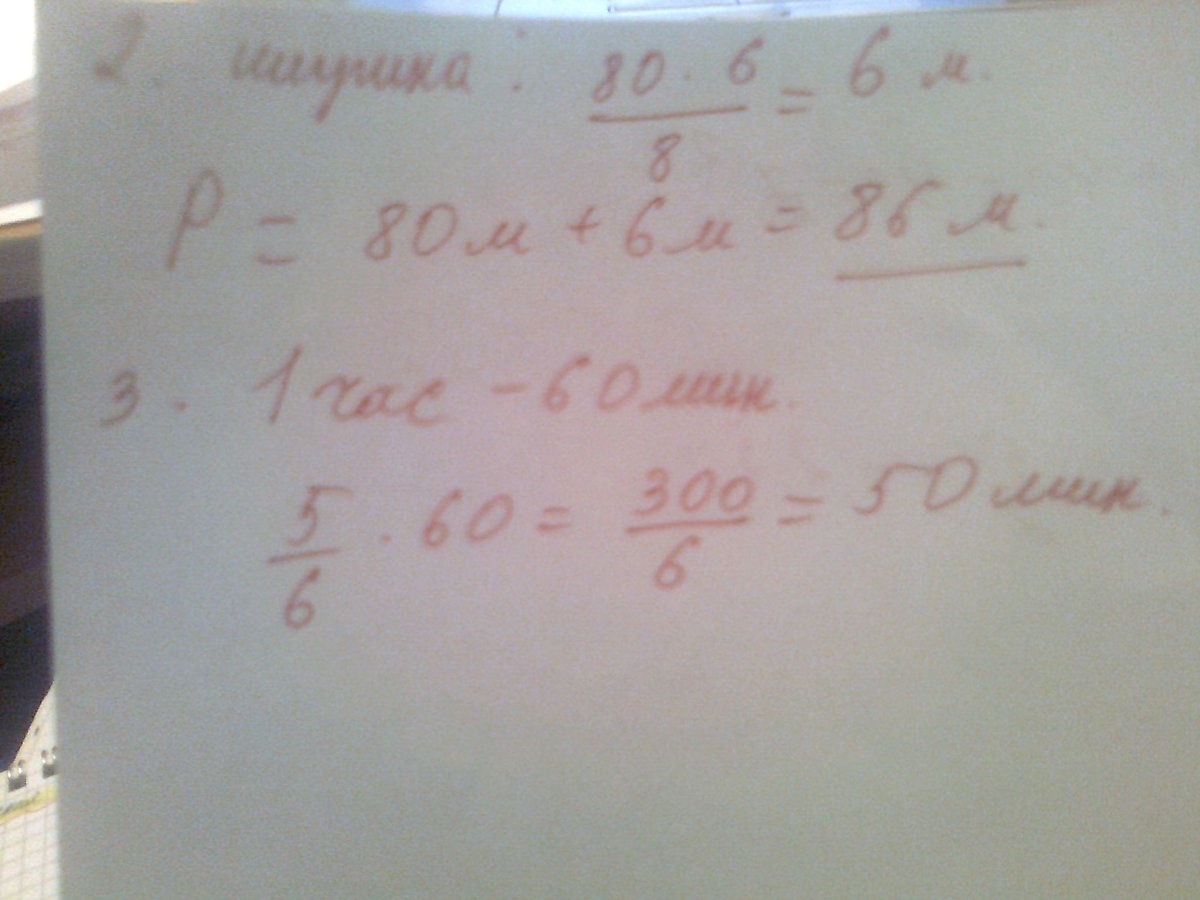 2. ширина: 80 · 6 / 8 = 6 м.
P = 80 м + 6 м = 86 м.
3. 1 час - 60 мин.
5/6 · 60 = 300/6 = 50 мин.